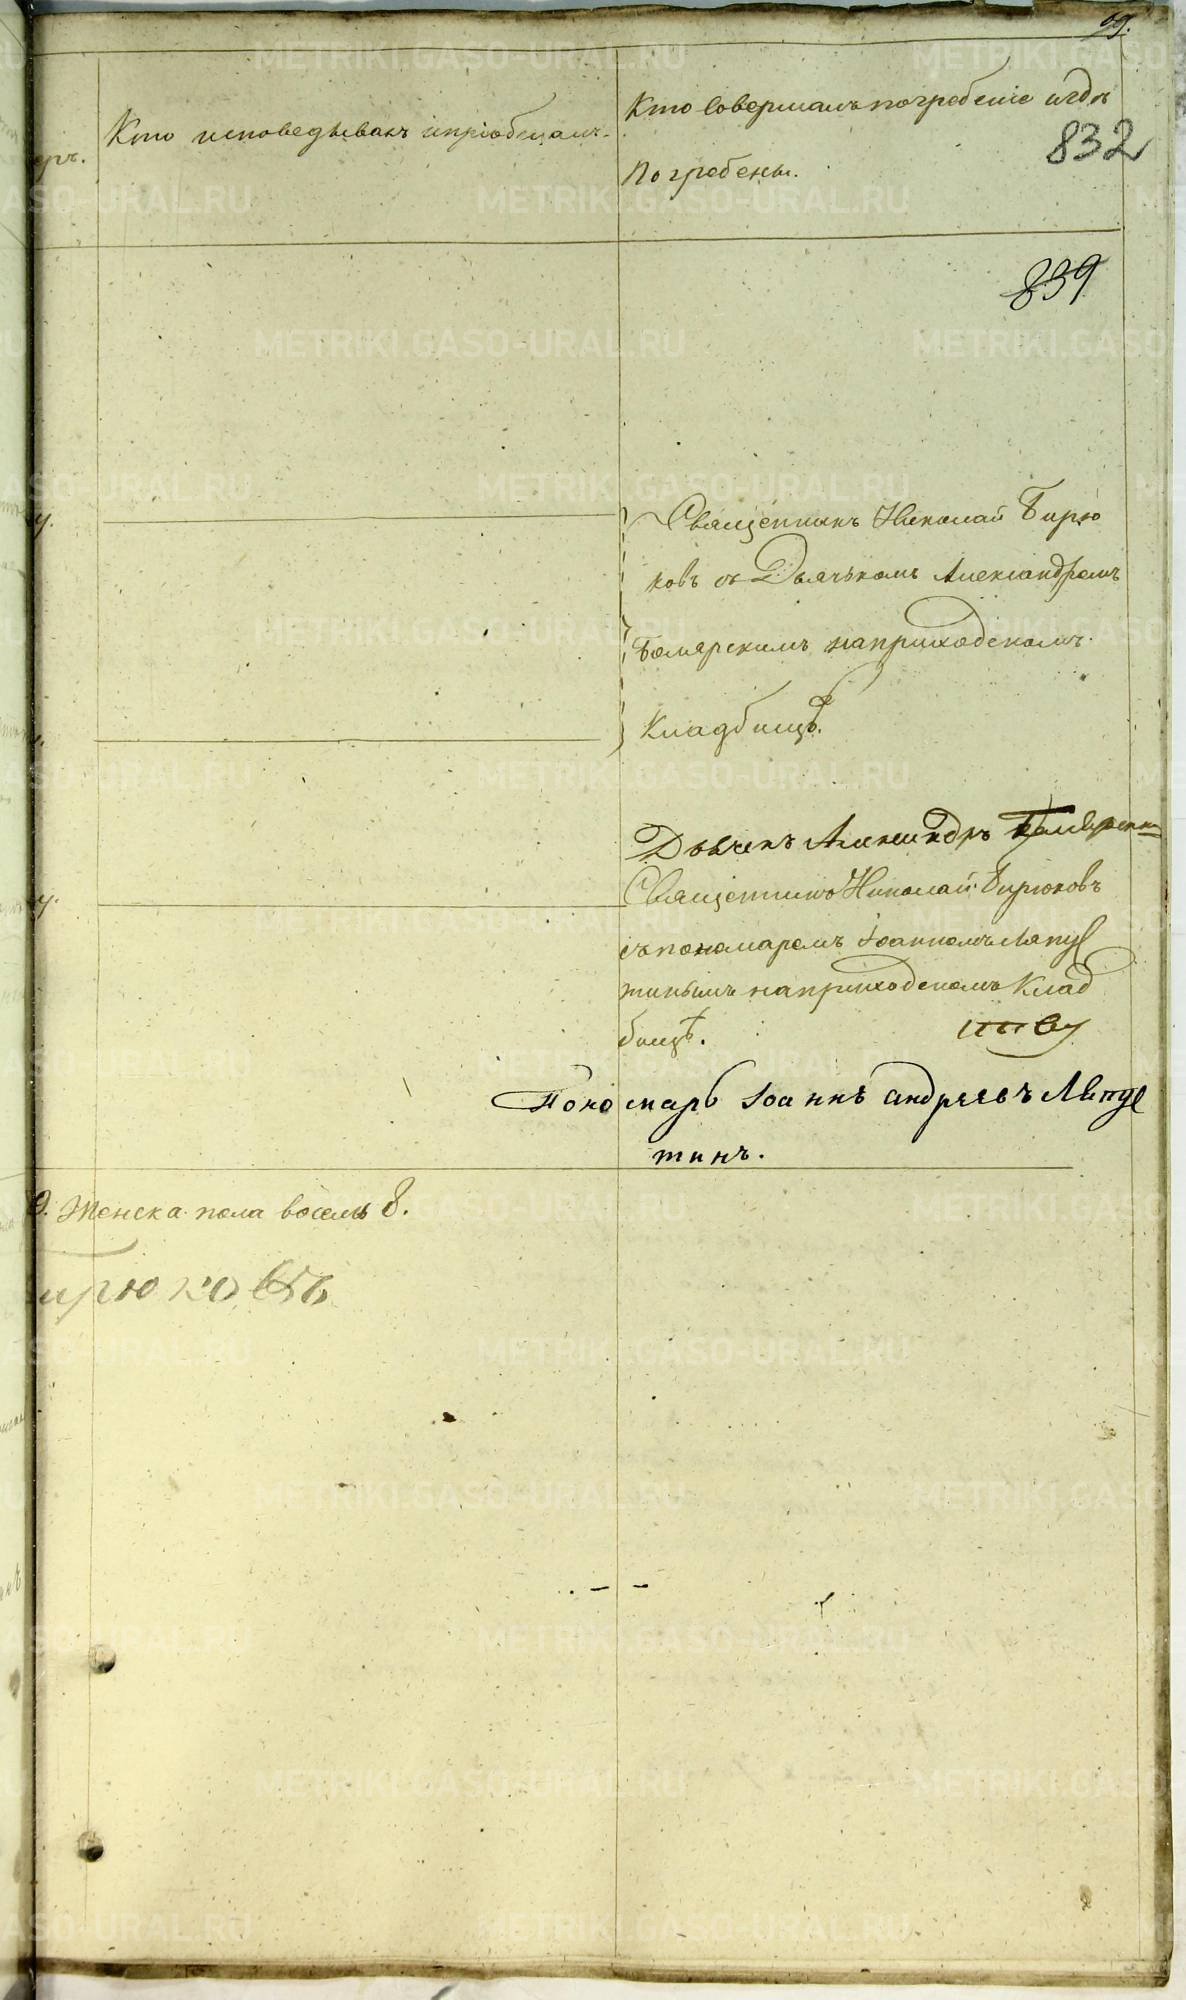 99.
Кто исповедывалъ и пріобщалъ.
Кто совершалъ погребеніе и гдѣ
погребены.
832
839
Священникъ Николай Бирю
ковъ съ Дьячькомъ Александромъ
Боярскимъ на приходскомъ
Кладбищѣ.
Дьячекъ Александръ
Священникъ Николай Бирюковъ
съ пономаремъ Іоанномъ Лапус
тинымъ на приходскомъ Клад
бищѣ.
Пономарь Іоаннъ андреевъ Лапус
тинъ.
Женска пола восемь 8.
ирюковъ
METRIKI.GASO-URAL.RU